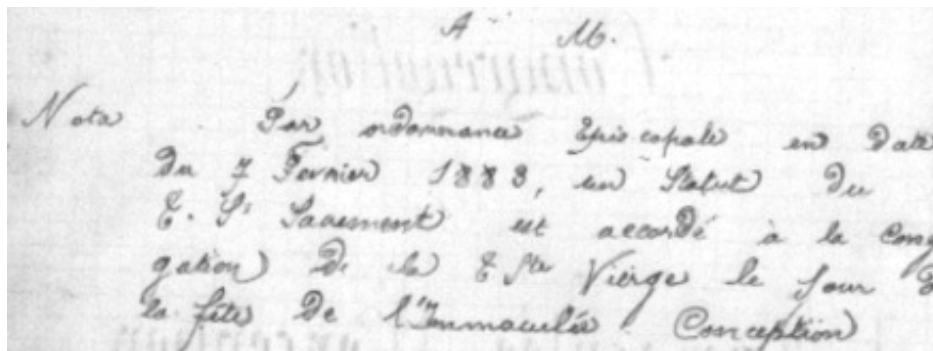 A M.
Nota Par ordonnance Episcopale en Date
du 7 Fevrier 1883, un Statut du
T. St Sacrement est accordé à la Cong
gation de la T Ste Vierge le jour D
la fête de l'Immaculée Conception